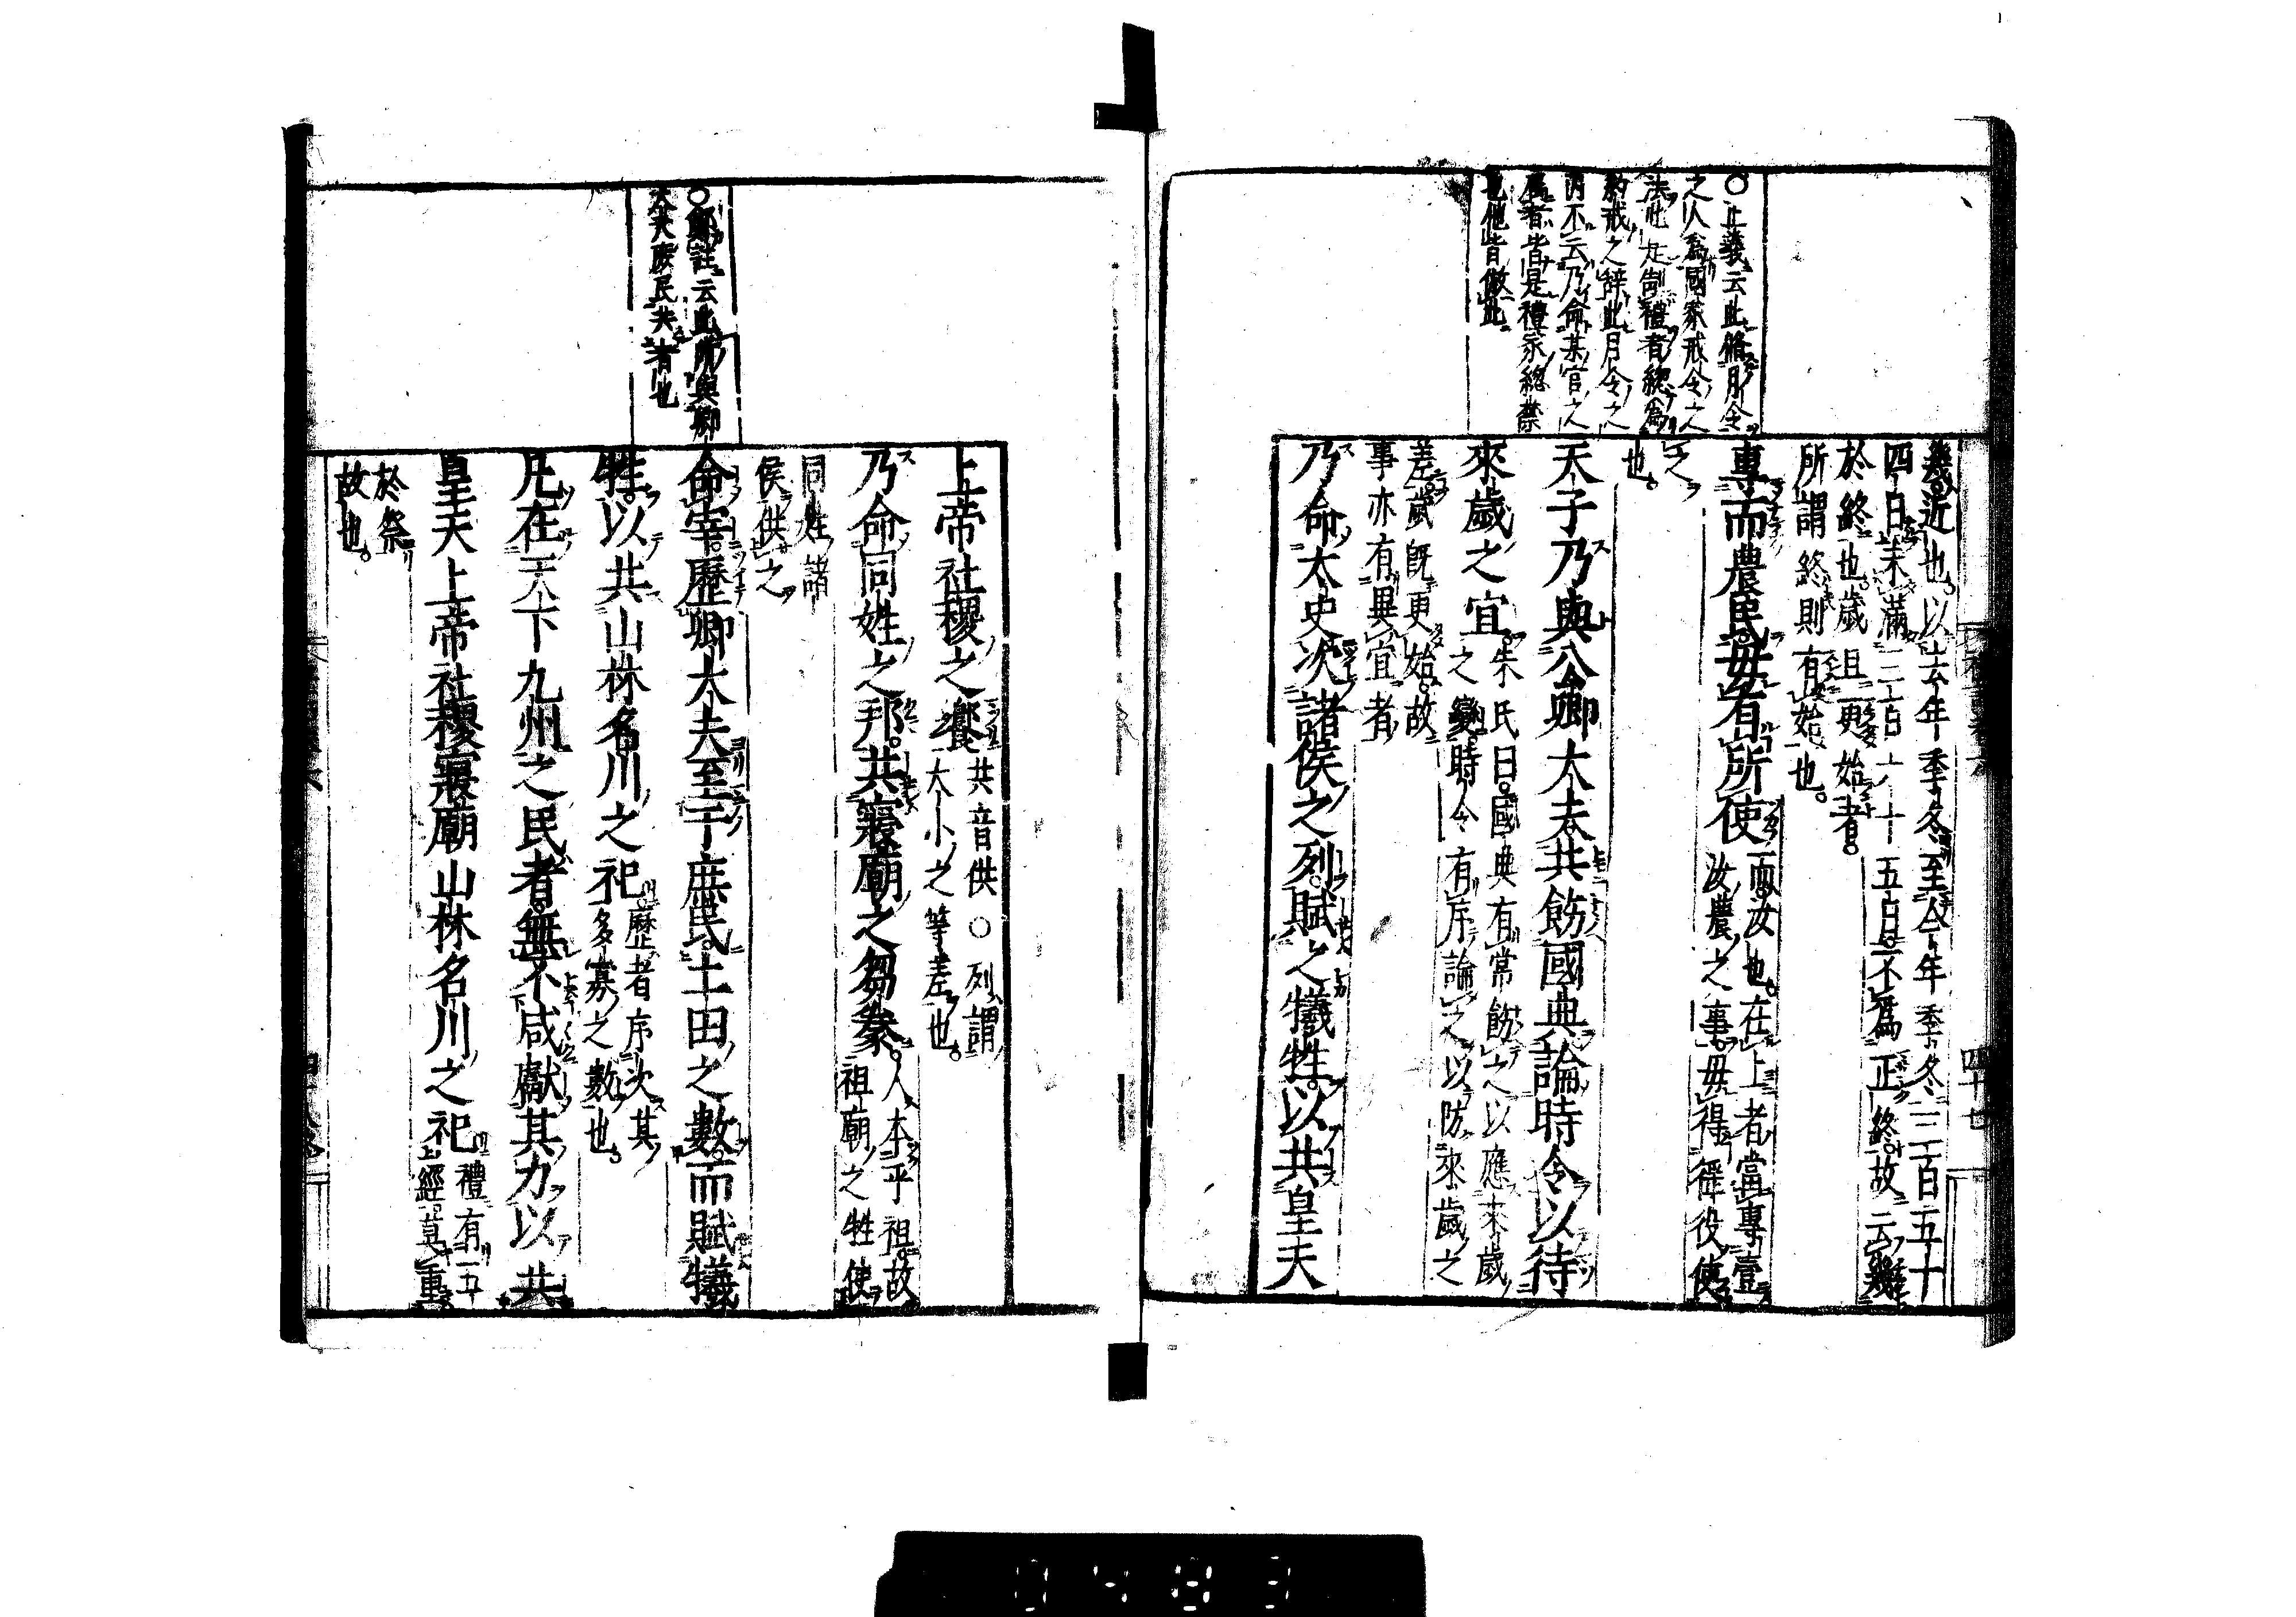 ○正義云此脩月令
之人為國家戒令之
法此是制禮者緫為
約戒之辭此月令之
内不云乃命某官之
屬者皆是禮家緫禁
也他皆倣此
幾近也以去年季冬至今年季冬三百五十
四日未滿三百六十五日不爲正終故云幾
於終也歲且更始者
所謂終則有始也
專而農民毋有所使
而汝也在上者當專壹
汝農之事毋得徭役使
之
也
天子乃與公卿大夫共飭國典論時令以待
來歲之宜
朱氏曰國典有常飭之以應來歲
之變時令有序論之以防來歲之
差歲旣更始故
事亦有異宜者
乃命太史次諸侯之列賦之犧牲以共皇天
○鄭註云此所與卿
大夫庶民共者也
上帝社稷之饗
共音供○列謂
大小之等差也
乃命同姓之邦共寢廟之芻豢
人本乎祖故
祖廟之牲使
同姓諸
侯供之
命宰歷卿大夫至于庶民土田之數而賦犧
牲以共山林名川之祀
歷者序次其
多寡之數也
凡在天下九州之民者無不咸獻其力以共
皇天上帝社稷寢廟山林名川之祀
禮有五
經莫重
於祭
故也